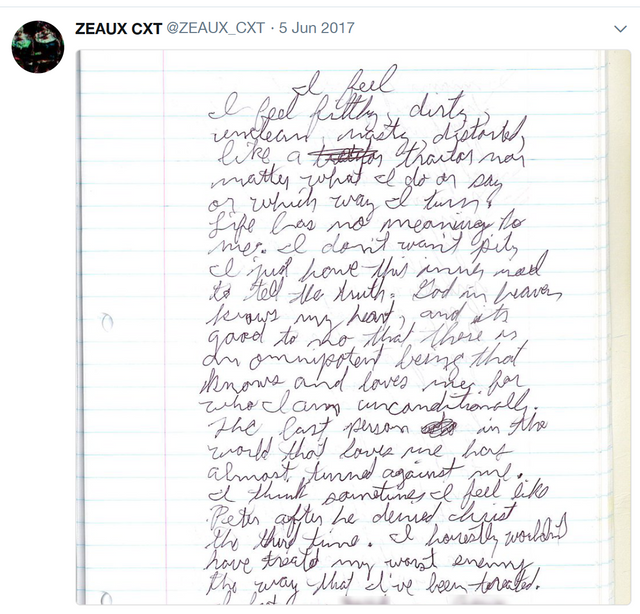 ZEAUX CXT @ZEAUX_CXT · 5 Jun 2017
I feel
I feel filthy, dirty,
unclean, nasty, distorted,
like a traitor nor
matter what I do or say
or which way I turn!
Life has no meaning to
me. I don't want pity
I just have this inner need
to tell the truth. God in heaven
knows my heart, and its
good to no that there is
an omnipotent being that
knows and loves me for
who I am unconditionally.
The last person in the
world that loves me has
almost turned against me.
I think sometimes I feel like
Peter after he denied Christ
the third time. I honestly wouldn't
have treatd my worst enemy
the way that I've been treated.